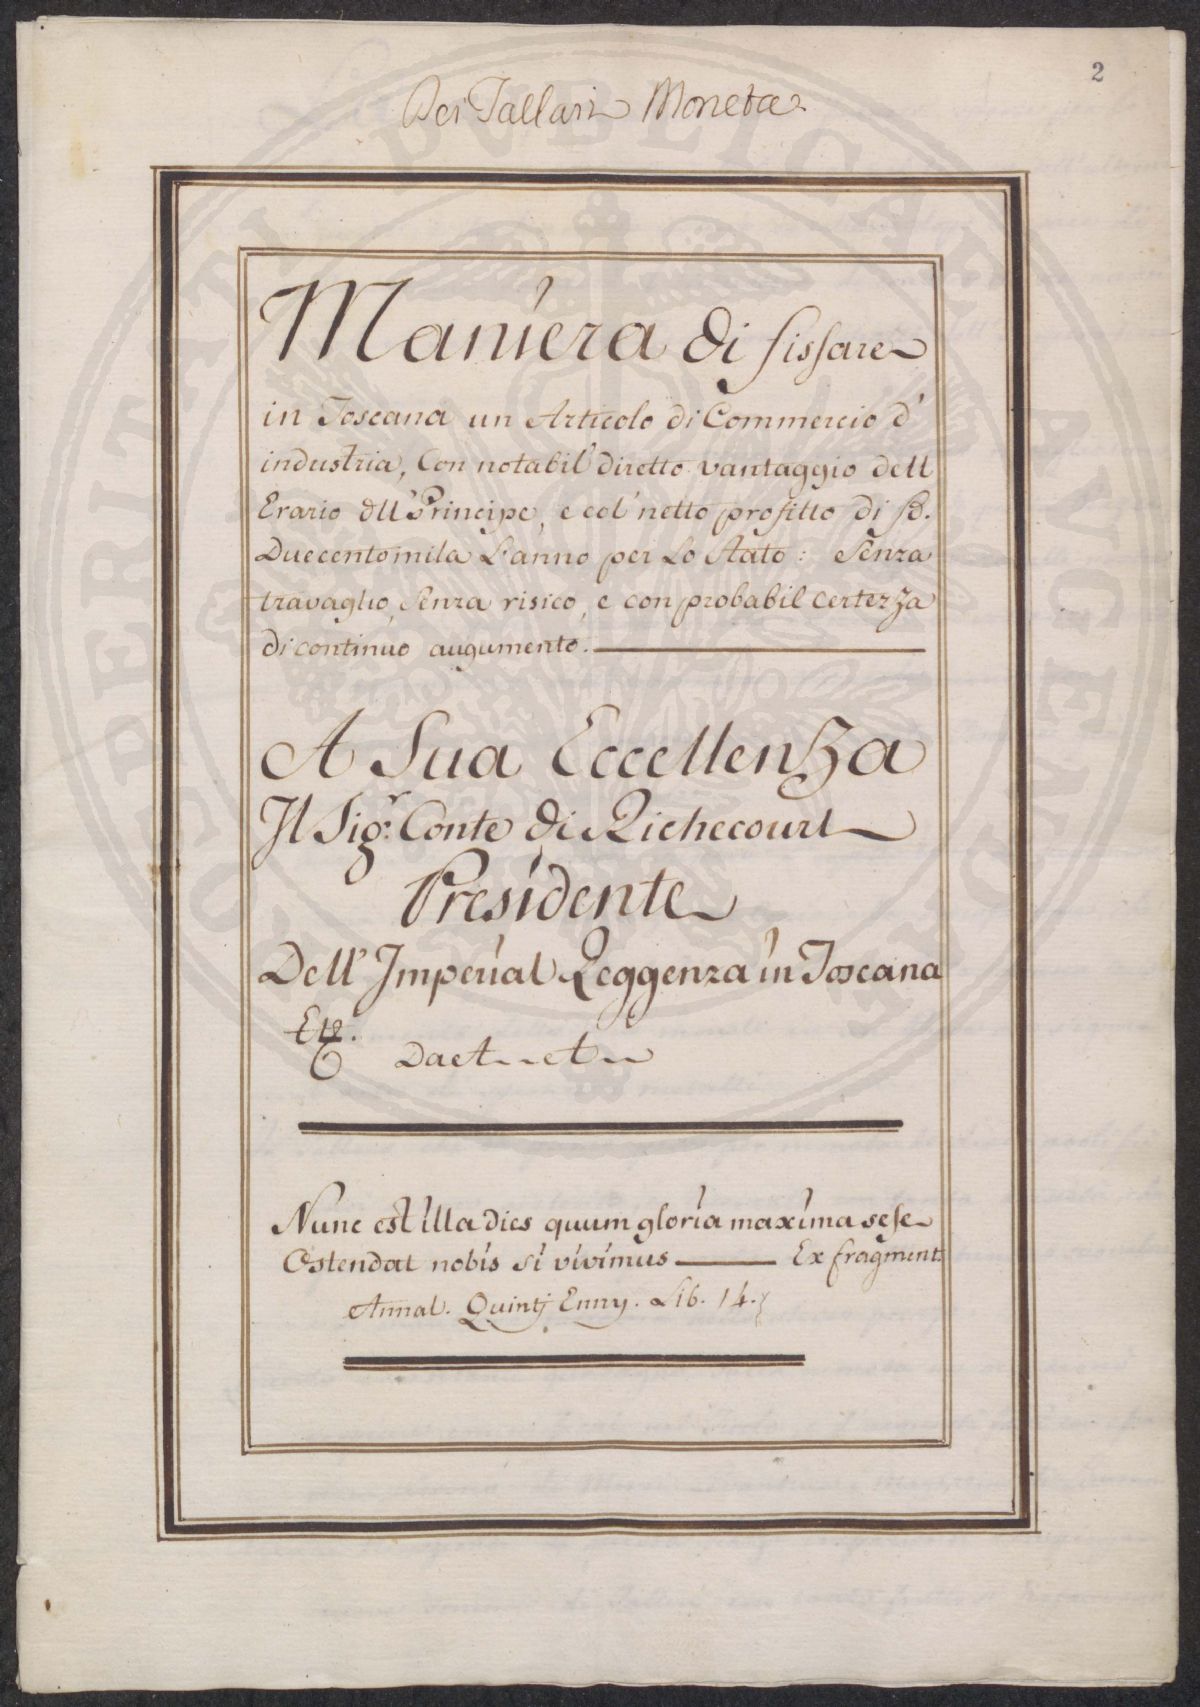 2
Dei Tallari Moneta
Maniera di fissare
in Toscana un Articolo di Commercio d'
industria, Con notabil diretto vantaggio dell
Erario dll' Principe, e col' netto profitto di
Duecentomila L'anno per Lo Stato: Senza
travaglio, Senza risico, e con probabil certezza
di continuo augumento.
A Sua Eccellenza
Il Sigr. Conte di Richecourt
Presidente
Dell' Imperial Reggenza in Toscana
Nunc est illa dies quum gloria maxima sese
Ostendat nobis si vivimus Ex fragment.
Annal. Quintj Ennij. Lib. 14.
PROSPERITATI PUBLICAE AUGENDAE